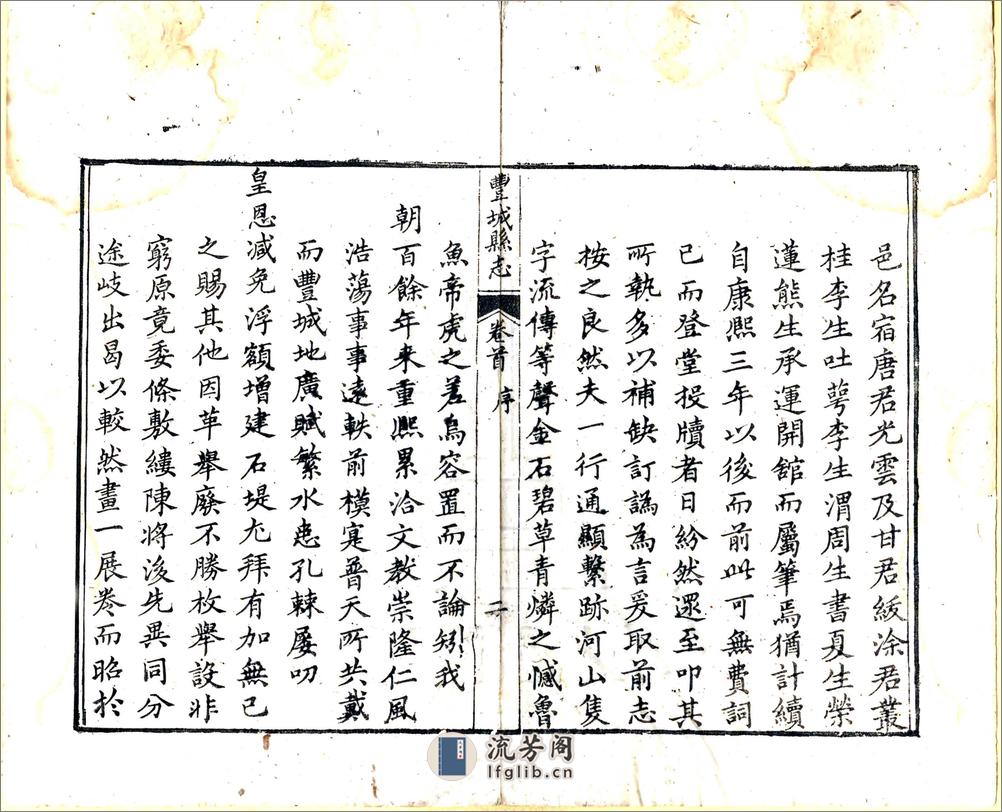 邑名宿唐君光雲及甘君紱涂君叢
桂李生吐萼李生渭周生書夏生榮
蓮熊生承運開舘而屬筆焉猶計續
自康熙三年以後而前此可無費詞
已而登堂投牘者日紛然還至叩其
所執多以補缺訂譌為言爰取前志
桉之良然夫一行通顯繫跡河山隻
字流傳等聲金石碧草青燐之憾魯
豐城縣志
卷首
序
二
魚帝虎之差烏容置而不論矧我
朝百餘年來重熙累洽文教崇隆仁風
浩蕩事事遠軼前模寔普天所共戴
而豐城地廣賦繁水患孔棘屡叨
皇恩減免浮額增建石堤尤拜有加無已
之賜其他因革舉廢不勝枚舉設非
窮原竟委條敷縷陳将後先異同分
途歧出曷以較然畫一展卷而昭於
流芳阁
lfglib.cn